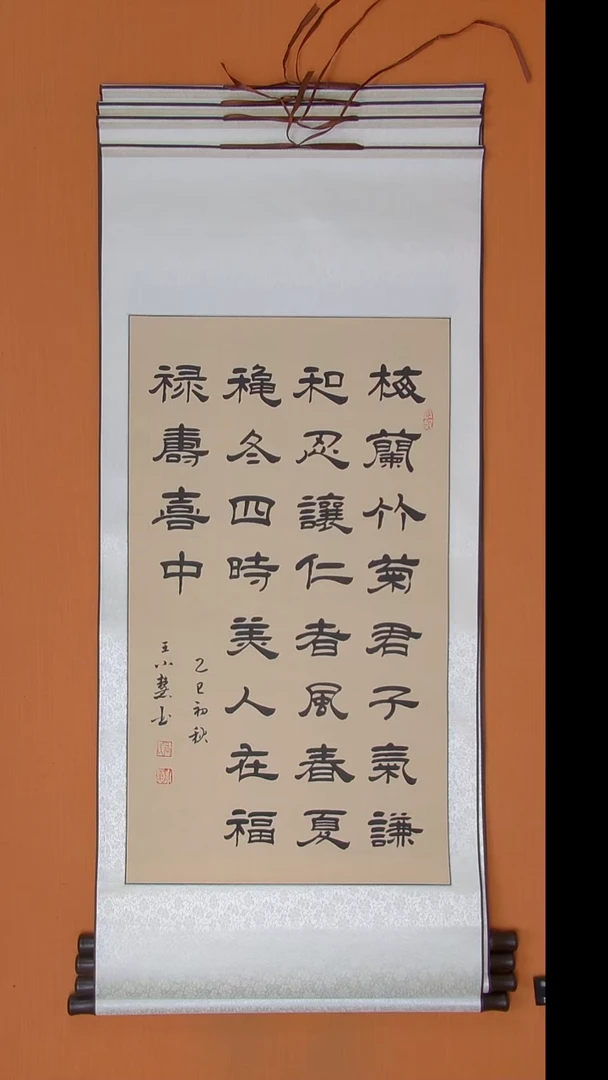 梅蘭竹菊君子氣謙
和忍讓仁者風春夏
穐冬四時美人在福
禄壽喜中
乙巳初秋
王小慧书